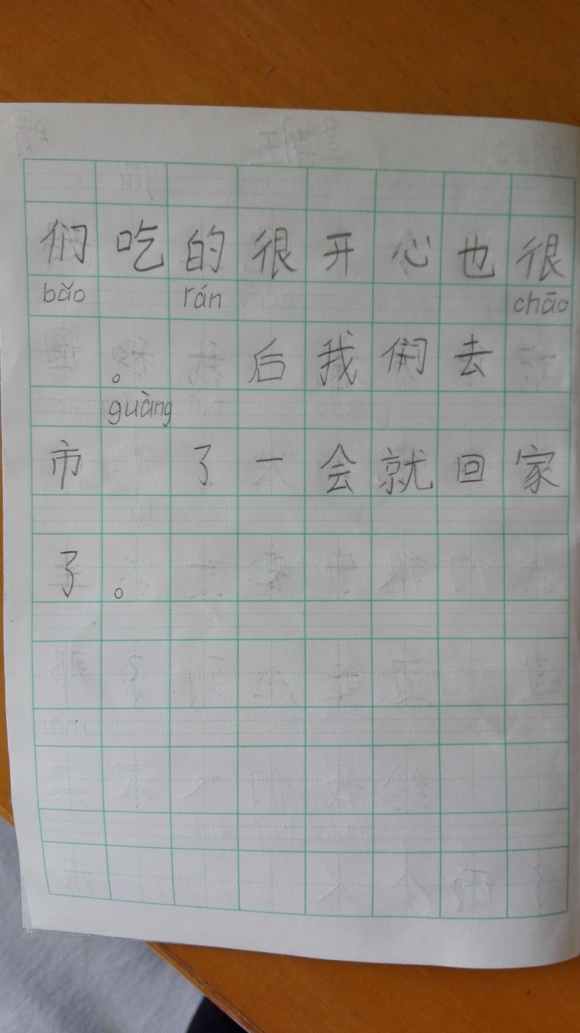 们吃的很开心也很
bǎo rán chāo
。后我们去
guàng
市了一会就回家
了。